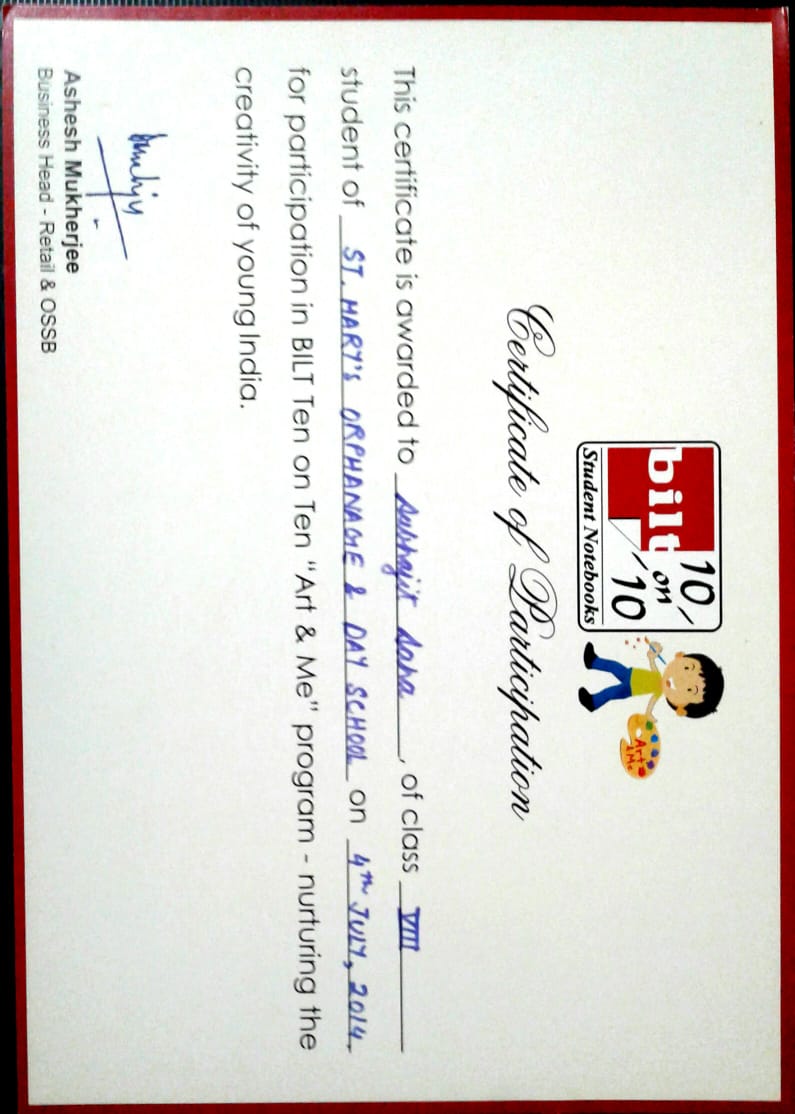 bilt 10 on 10
Student Notebooks
Art & Me
Certificate of Participation
This certificate is awarded to Subhajit Saha, of class VIII
student of ST. MARY'S ORPHANAGE & DAY SCHOOL on 4th JULY, 2014.
for participation in BILT Ten on Ten “Art & Me” program - nurturing the
creativity of young India.
Ashesh Mukherjee
Business Head - Retail & OSSB